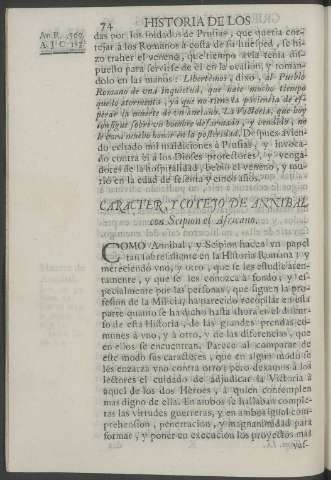 74 HISTORIA DE LOS
An. R. 569.
A. J. C. 183.
das por los soldados de Prusias, que queria cor-
tejar à los Romanos à costa de su huesped, se hi-
zo traher el veneno, que tiempo avia tenia dis-
puesto para servirse de èl en la ocasion; y toman-
dolo en las manos: Libertèmos, dixo, al Pueblo
Romano de una inquietud, que hace mucho tiempo
quello atormenta, yà que no tiene la paciencia de es-
perar la muerte de un anciano. La Victoria, que hoy
consigue sobre un hombre desarmado, y vendido, no
le harà mucho honor en la posteridad. Despues avien-
do echado mil maldiciones à Prusias, y invoca-
do contra èl à los Dioses protectores, y venga-
dores de la hospitalidad, bebiò el veneno, y mu-
riò en la edad de setenta y cinco años.
CARACTER, Y COTEJO DE ANNIBAL
con Scipion el Africano.
COMO Annibal, y Scipion hacen un papel
tan sobresaliente en la Historia Romana; y
mereciendo vno, y otro, que se les estudie aten-
tamente, y que se les conozca à fondo; y es-
pecialmente por las personas, que siguen la pro-
fesion de la Milicia; ha parecido recopilar en esta
parte quanto se ha dicho hasta ahora en el discur-
so de esta Historia, de las grandes prendas co-
munes à vno, y à otro, y de las diferencias, que
en ellos se encuentran. Parece al comparar de
este modo sus caractères, que en algun modo se
les enzarza vno contra otro; pero dexamos à los
lectores el cuidado de adjudicar la Victoria à
aquel de los dos Heroes, à quien contemplen
mas digno de ella. En ambos se hallaban comple-
tas las virtudes guerreras, y en ambos igual com-
prehension, penetracion, y magnanimidad para
formar, y poner en execucion los proyectos mas
vas-